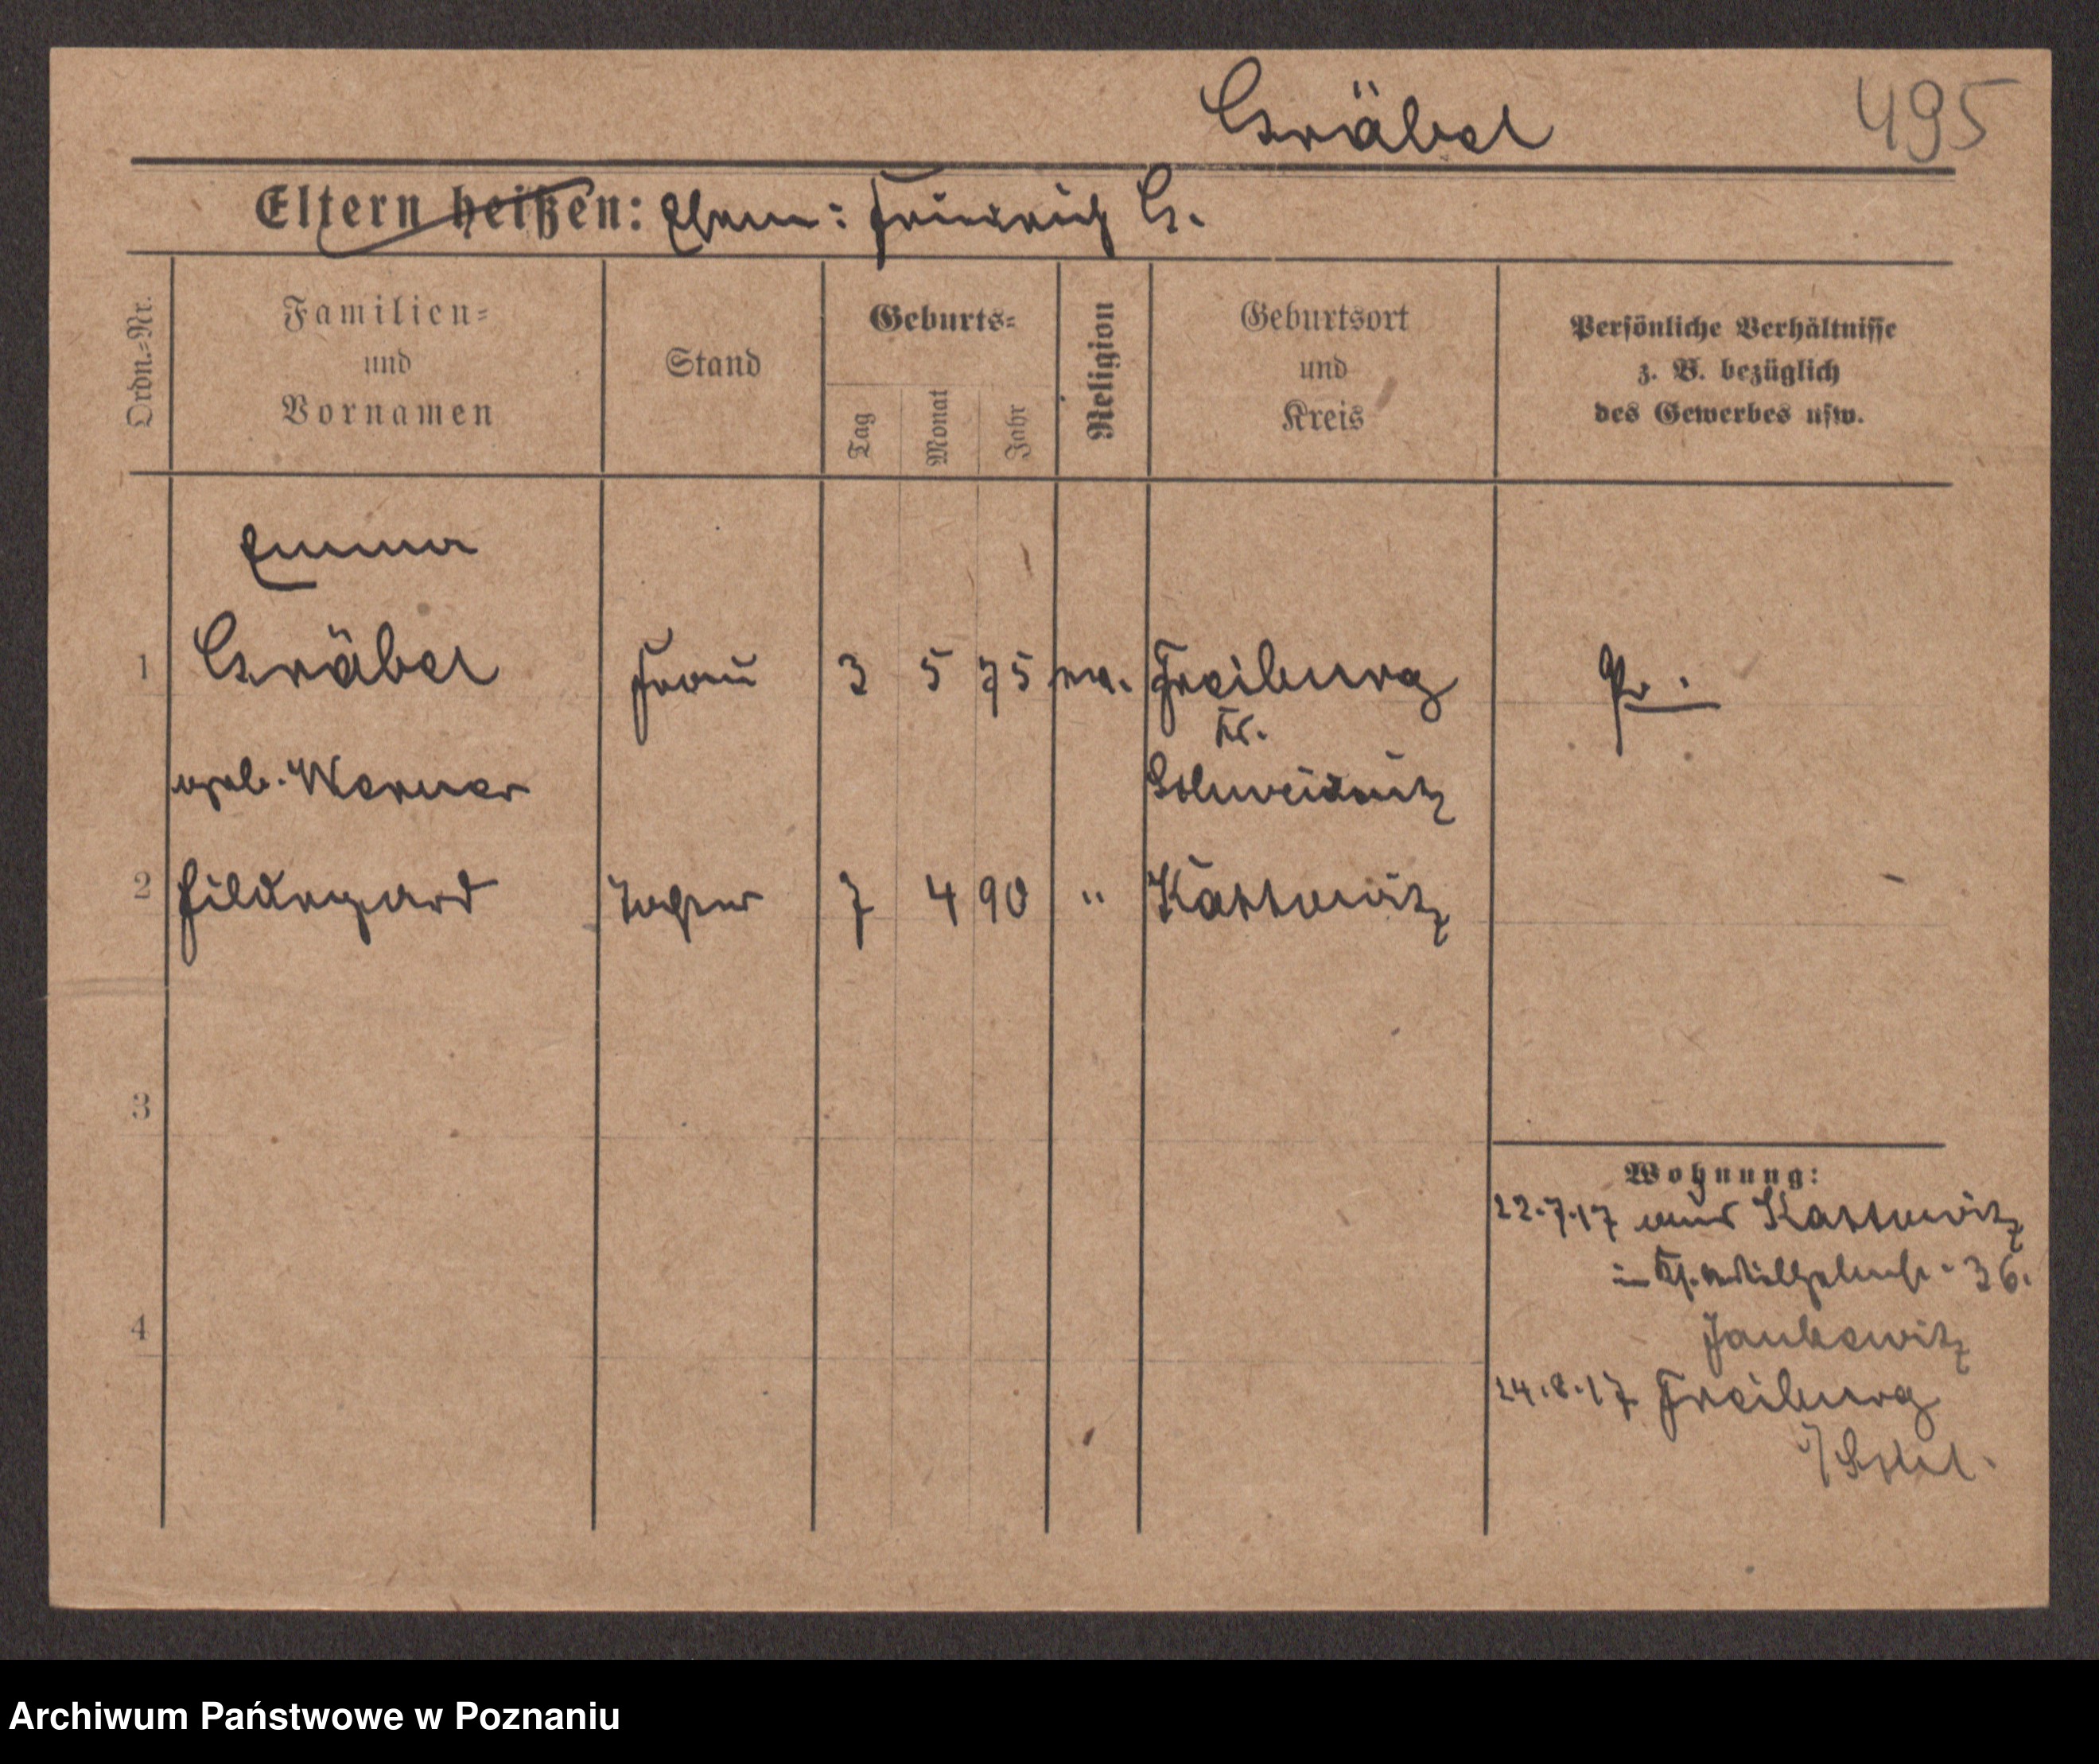 Gräbel 495
Eltern heißen: Ehem: Friedrich G.
Ordn.-Nr.
Familien-
und
Vornamen
Stand
Geburts-
Tag
Monat
Jahr
Religion
Geburtsort
und
Kreis
Persönliche Verhältnisse
z. B. bezüglich
des Gewerbes usw.
Emma
1 Gräbel Frau 3 5 75 ev. Freiburg Pr.
Kr.
geb. Werner Schweidnitz
2 Hildegard Tochter 7 4 90 " Kattowitz
3
4
Wohnung:
22.7.17 aus Kattowitz
in Kr. Wilhelmstr. 36.
Jankowitz
24.8.17 Freiburg
i/Schl.
Archiwum Państwowe w Poznaniu